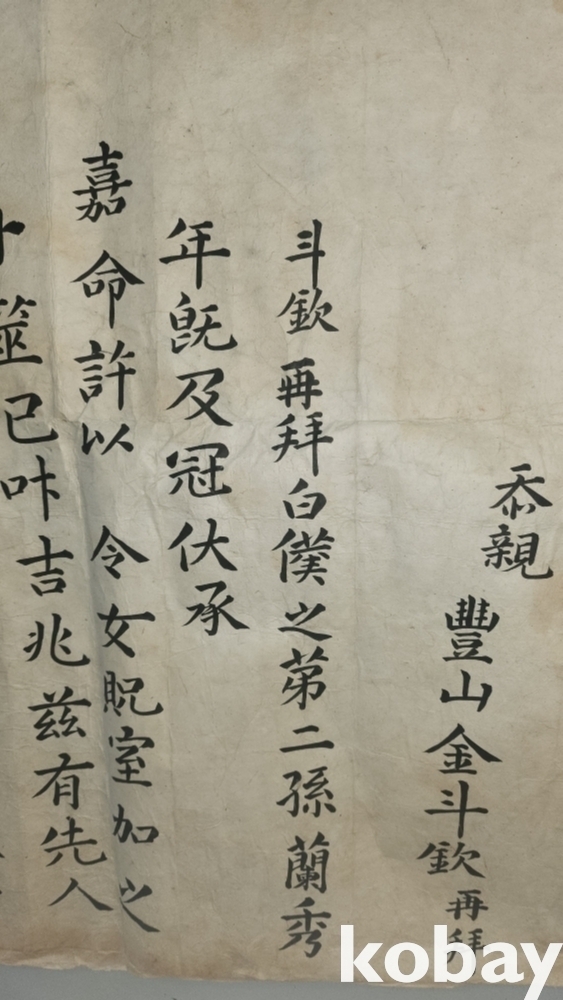 忝親
豐山金斗欽再拜
斗欽再拜白僕之苐二孫蘭秀
年旣及冠伏承
嘉命許以 令女貺室加之
卜筮已叶吉兆玆有先人
kobay